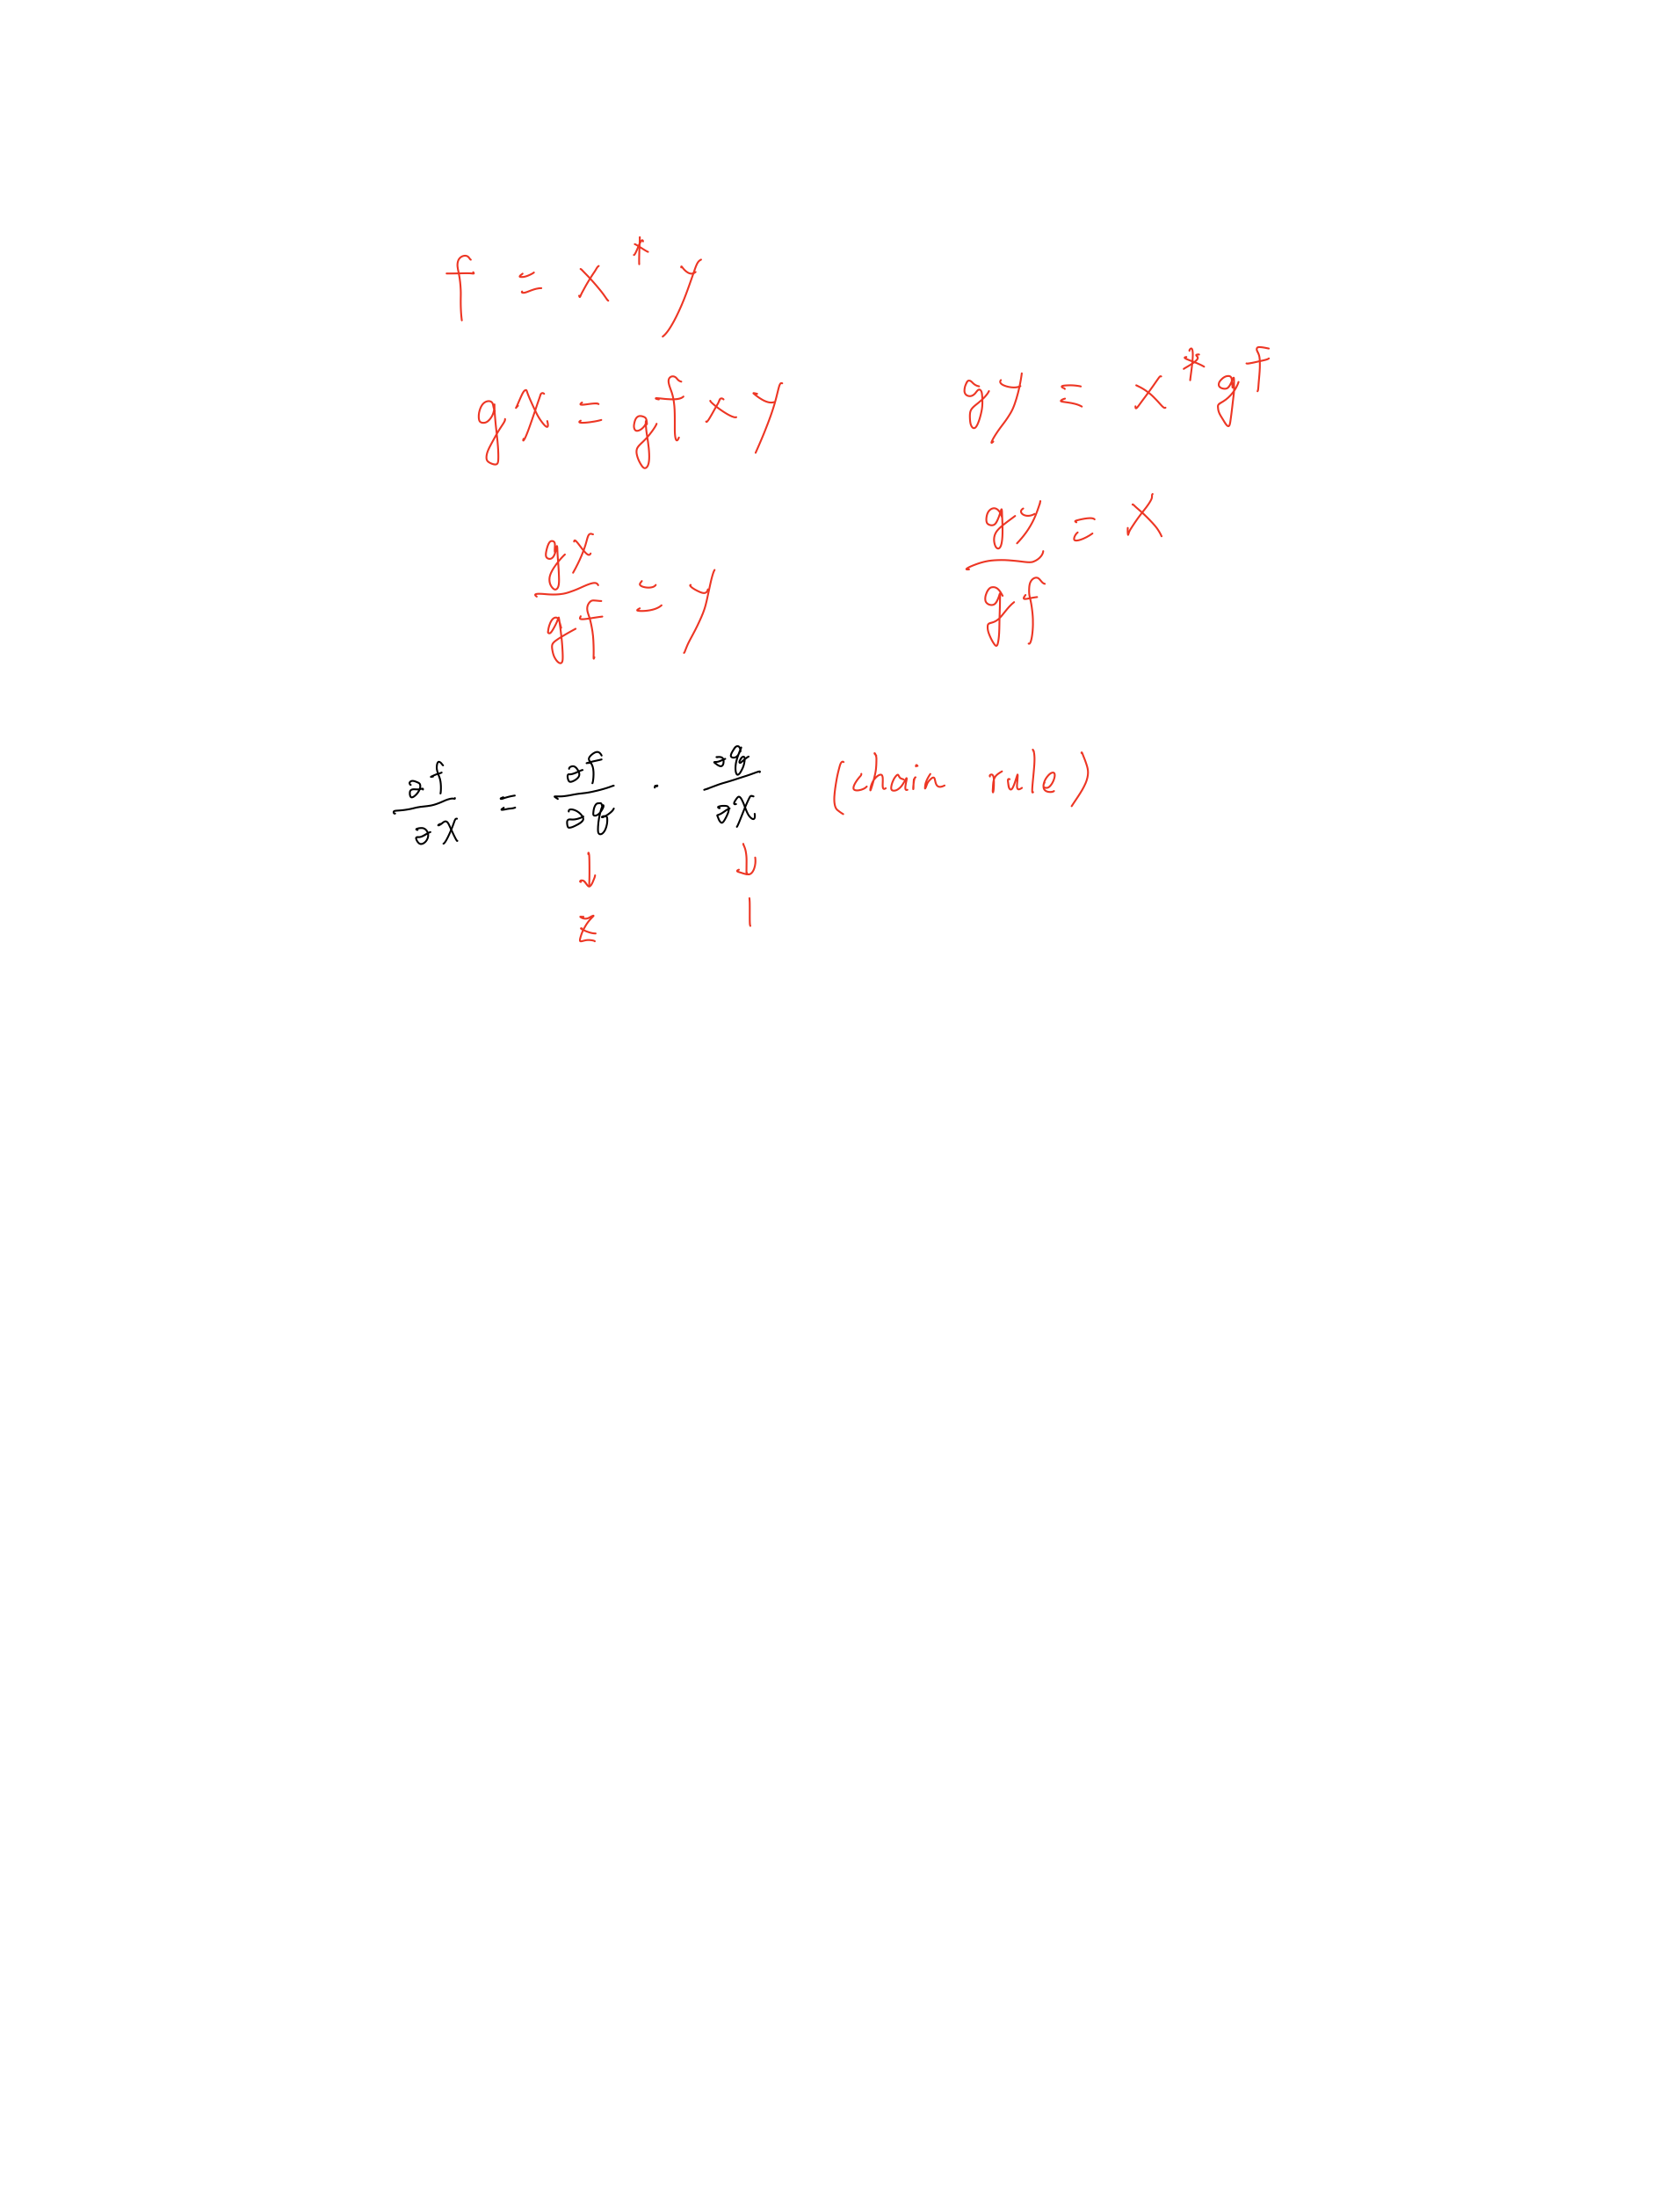 f = x * y
gx = gf x y
gy = x * gf
gx/gf = y
gy/gf = x
∂f/∂x = ∂f/∂q · ∂q/∂x (chain rule)
↓ ↓
z 1